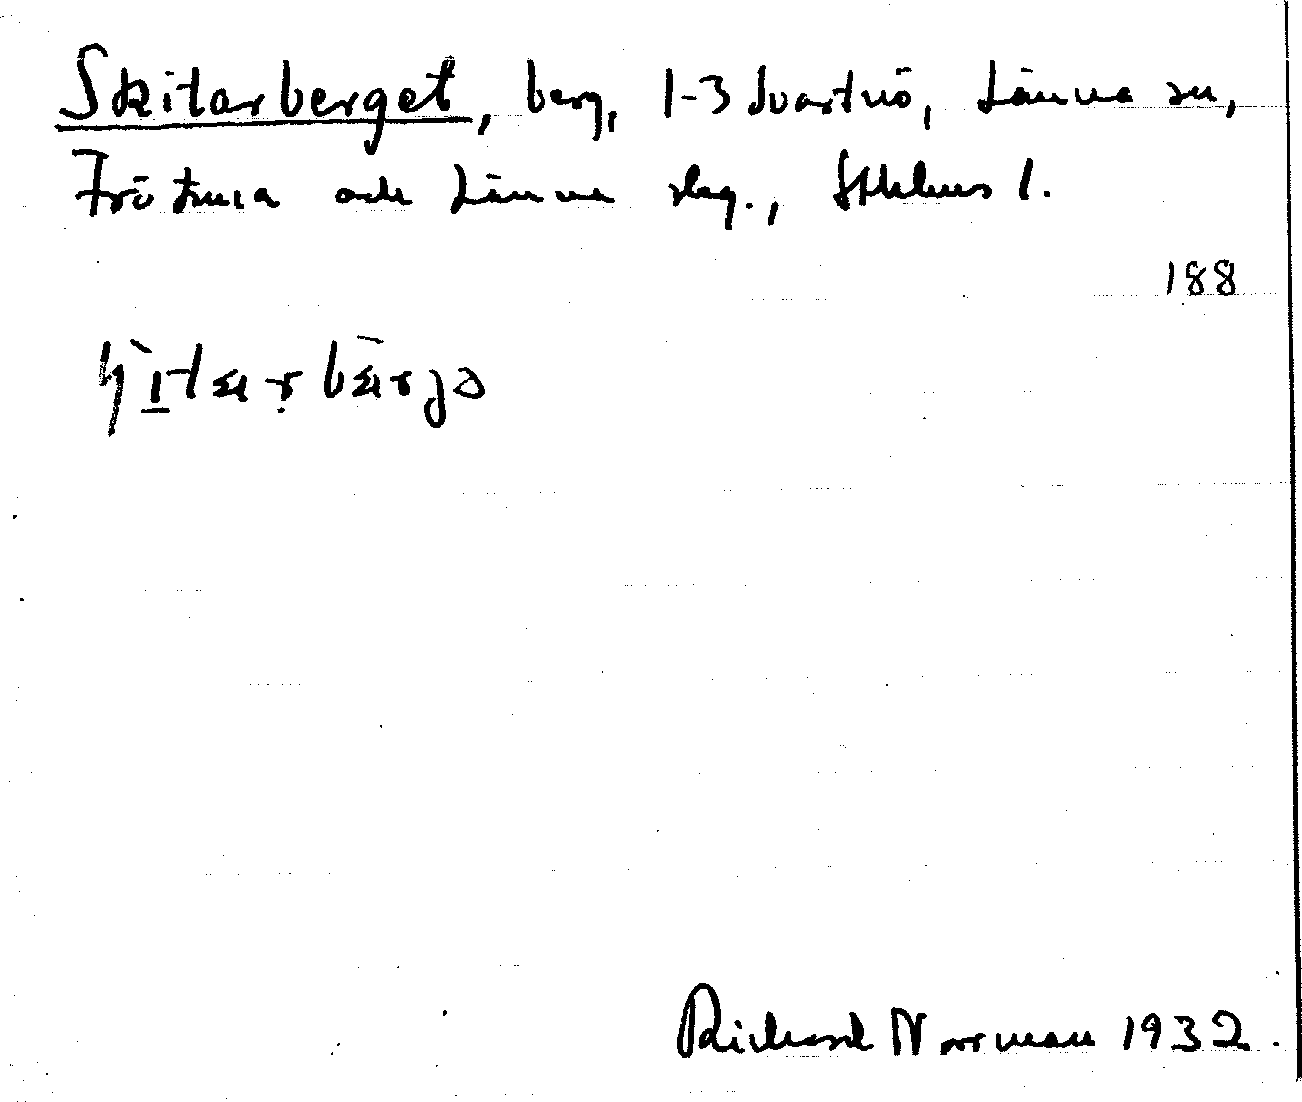 Skitarberget, berg, 1-3 Svartnö, Länna sn,
Frötuna och Länna slag., Sthlms l.
188
Richard Norrman 1932.